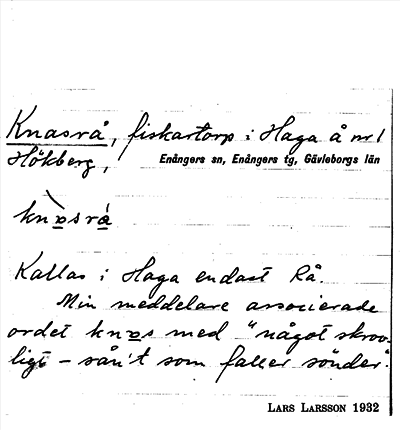 Knasrå, fiskartorp i Haga å nr 1
Hökberg,
Enångers sn, Enångers tg, Gävleborgs län
knɒsrå
Kallas i Haga endast Rå.
Min meddelare associerade
ordet knɒs med "något skrov-
ligt – sån't som faller sönder".
LARS LARSSON 1932